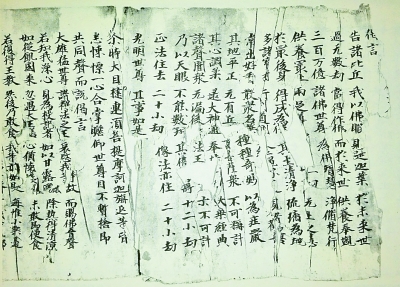 偈言
告諸比丘 我以佛眼 見是迦葉 於未來世
過無數劫 當得作佛 而於來世 供養奉覲
三百万億 諸佛世尊 為佛智慧 淨修梵行
供養最上 二足尊已 无上之慧
於最後身 得成為佛 其土清淨 琉璃為地
多諸寶樹 行列道側 見者歡喜
常出好香 散衆名華 種種奇妙 以為莊嚴
其地平正 无有丘 菩薩衆 不可稱計
其心調柔 逮大神通 奉 大乘經典
諸聲聞衆 无漏後 法王 亦不可計
乃以天眼 不能數知 其佛 十二小劫
正法住 二十小劫 像法亦住 二十小劫
光明世尊 其事如是
尒時大目揵連須菩提摩訶迦栴延等皆
悉悚慄一心合掌瞻仰世尊目不暫捨即
共同聲而說偈言
大雄猛世尊 諸釋之法王 哀愍我等故 而賜佛音聲
若知我深心 見為授記者 如以甘露灑 除熱得清涼
如從飢國來 忽遇大王饍 心猶懷 未敢即便食
若復得王教 然後乃敢食 我等亦如是 每惟小乘過